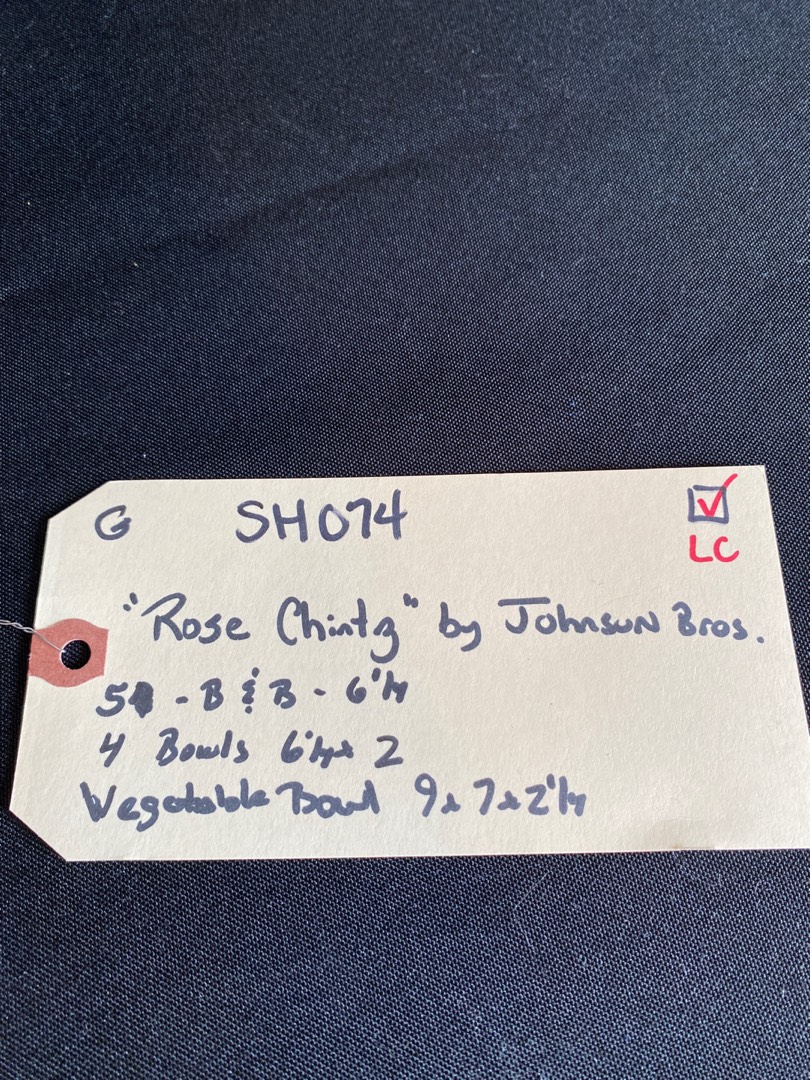 G SH074 ☑
LC
"Rose Chintz" by Johnson Bros.
5 - B & B - 6 1/4
4 Bowls 6 1/4 x 2
Vegetable Bowl 9 x 7 x 2 1/4